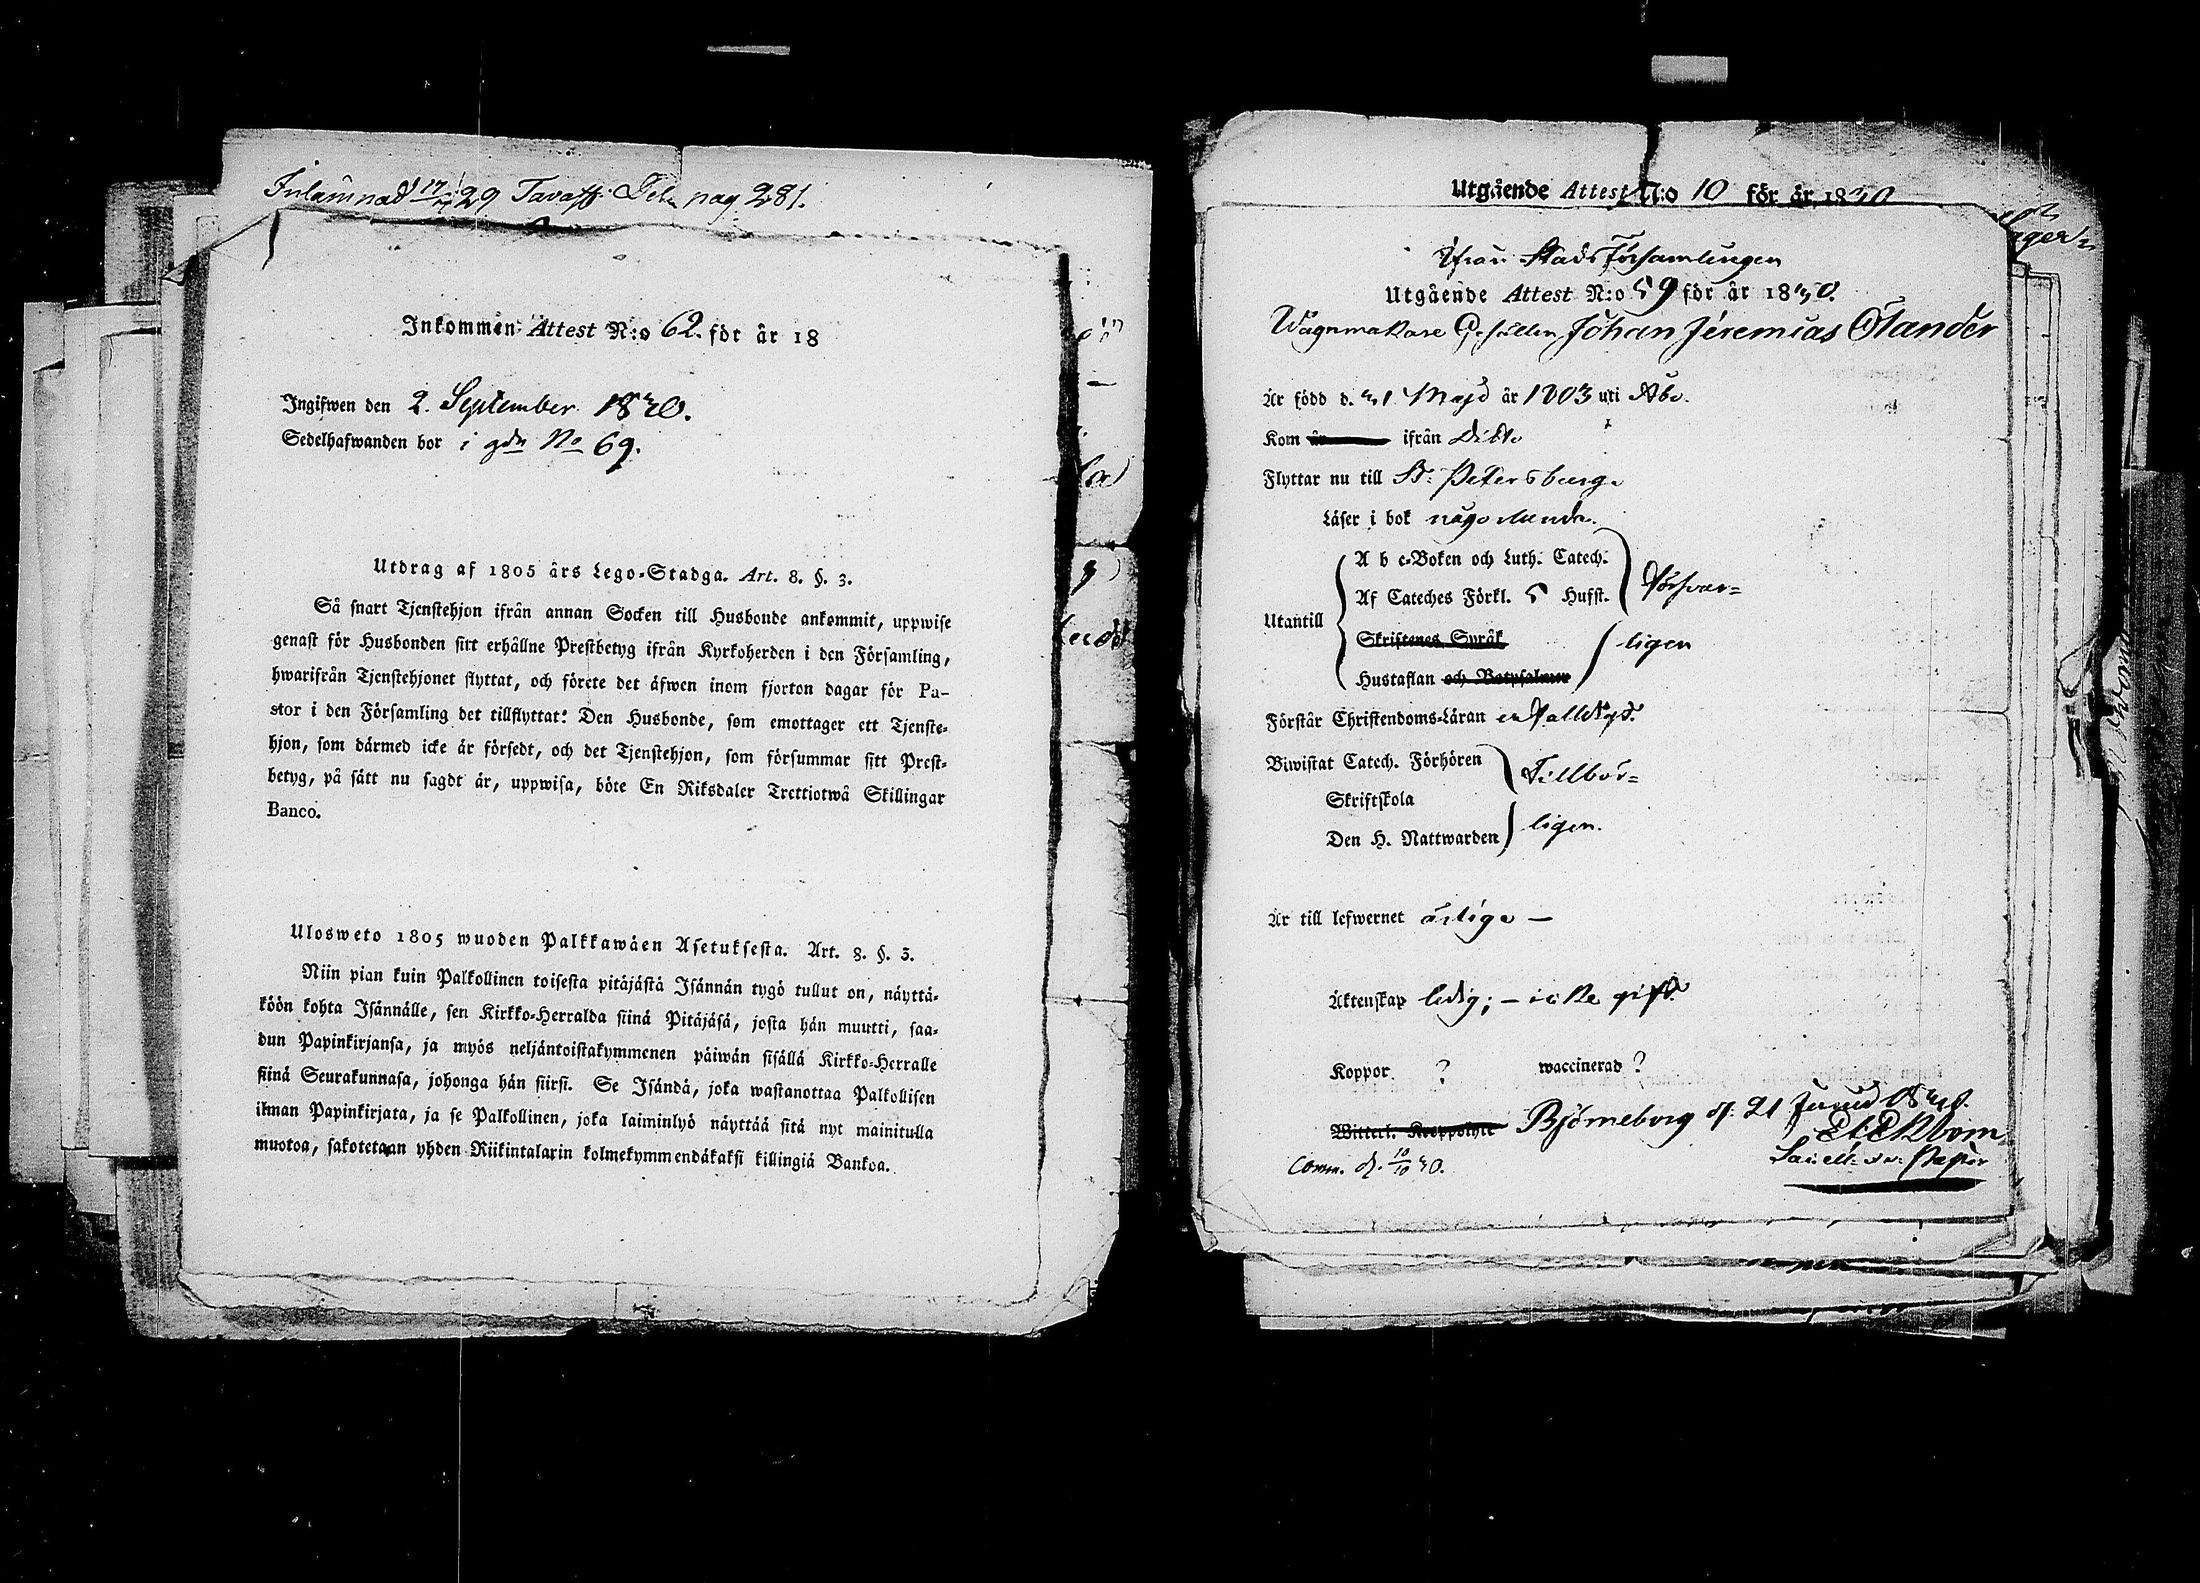 Inlämnad 17/ 29 Tavast. pag 281.
Inkommen Attest N:o 62. för år 18
Ingifwen den 2. September 1830.
Sedelhafwanden bor i gdn No 69.
Utdrag af 1805 års Lego-Stadga. Art. 8. §. 3.
Så snart Tjenstehjon ifrån annan Socken till Husbonde ankommit, uppwise
genast för Husbonden sitt erhållne Prestbetyg ifrån Kyrkoherden i den Församling,
hwarifrån Tjenstehjonet flyttat, och förete det äfwen inom fjorton dagar för Pa-
stor i den Församling det tillflyttat: Den Husbonde, som emottager ett Tjenste-
hjon, som därmed icke är försedt, och det Tjenstehjon, som försummar sitt Prest-
betyg, på sätt nu sagdt är, uppwisa, böte En Riksdaler Trettiotwå Skillingar
Banco.
Ulosweto 1805 wuoden Palkkawäen Asetuksesta. Art. 8. §. 3.
Niin pian kuin Palkollinen toisesta pitäjästä Isännän tygö tullut on, näyttä-
köön kohta Isännälle, sen Kirkko-Herralda siinä Pitäjäsä, josta hän muutti, saa-
dun Papinkirjansa, ja myös neljäntoistakymmenen päiwän sisällä Kirkko-Herralle
siinä Seurakunnasa, johonga hän siirsi. Se Isändä, joka wastanottaa Palkollisen
ilman Papinkirjata, ja se Palkollinen, joka laiminlyö näyttää sitä nyt mainitulla
muotoa, sakotetaan yhden Riikintalarin kolmekymmendäkaksi killingiä Bankoa.
Utgående Attest N:o 10 för år 1830
Ifrån Stads Församlingen
Utgående Attest N:o 59 för år 1830.
Wagnmakare Gesällen Johan Jeremias Ölander
Är född d. 31 Maji år 1803 uti Åbo.
Kom år ifrån Dito
Flyttar nu till St. Petersburg.
Läser i bok någorlunda.
A b c-Boken och Luth. Catech.
Af Cateches Förkl. 5 Hufst. Försvar-
Utantill
Skriftenes Språk ligen
Hustaflan och Botpsalmer
Förstår Christendoms-Läran enfalldigt.
Biwistat Catech. Förhören Tillbör-
Skriftskola
Den H. Nattwarden ligen.
Är till lefwernet ärlige —
Äktenskap ledig; — icke gift.
Koppor ? waccinerad ?
Björneborg d. 21 Junii 1830.
Witterl. Kroppslyte
Ekbom
Comm. d. 10/10 30.
Pastor